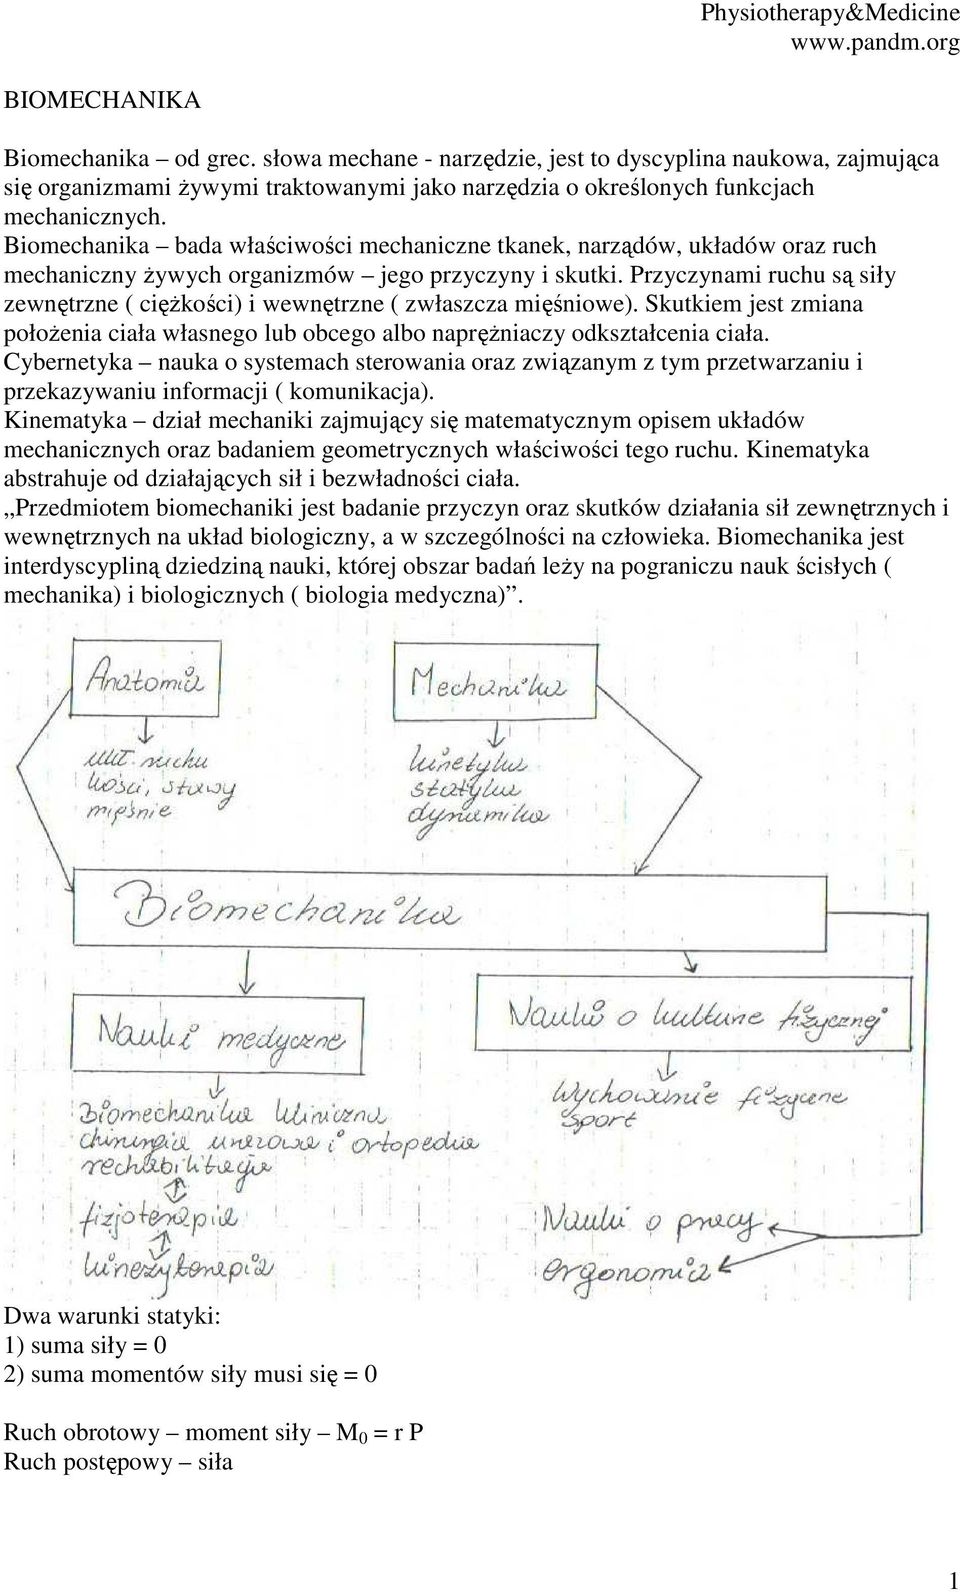 Physiotherapy&Medicine
www.pandm.org
BIOMECHANIKA
Biomechanika – od grec. słowa mechane - narzędzie, jest to dyscyplina naukowa, zajmująca
się organizmami żywymi traktowanymi jako narzędzia o określonych funkcjach
mechanicznych.
Biomechanika – bada właściwości mechaniczne tkanek, narządów, układów oraz ruch
mechaniczny żywych organizmów – jego przyczyny i skutki. Przyczynami ruchu są siły
zewnętrzne ( ciężkości) i wewnętrzne ( zwłaszcza mięśniowe). Skutkiem jest zmiana
położenia ciała własnego lub obcego albo naprężniaczy odkształcenia ciała.
Cybernetyka – nauka o systemach sterowania oraz związanym z tym przetwarzaniu i
przekazywaniu informacji ( komunikacja).
Kinematyka – dział mechaniki zajmujący się matematycznym opisem układów
mechanicznych oraz badaniem geometrycznych właściwości tego ruchu. Kinematyka
abstrahuje od działających sił i bezwładności ciała.
„Przedmiotem biomechaniki jest badanie przyczyn oraz skutków działania sił zewnętrznych i
wewnętrznych na układ biologiczny, a w szczególności na człowieka. Biomechanika jest
interdyscypliną dziedziną nauki, której obszar badań leży na pograniczu nauk ścisłych (
mechanika) i biologicznych ( biologia medyczna)”.
Anatomia
Mechanika
ukł. ruchu
kości, stawy
mięśnie
kinetyka
statyka
dynamika
Biomechanika
Nauki medyczne
Nauki o kulturze fizycznej
Biomechanika kliniczna
chirurgia urazowa i ortopedia
rechabilitacja
fizjoterapia
kinezyterapia
wychowanie fizyczne
sport
Nauki o pracy
ergonomia
Dwa warunki statyki:
1) suma siły = 0
2) suma momentów siły musi się = 0
Ruch obrotowy – moment siły – M0 = r P
Ruch postępowy – siła
1